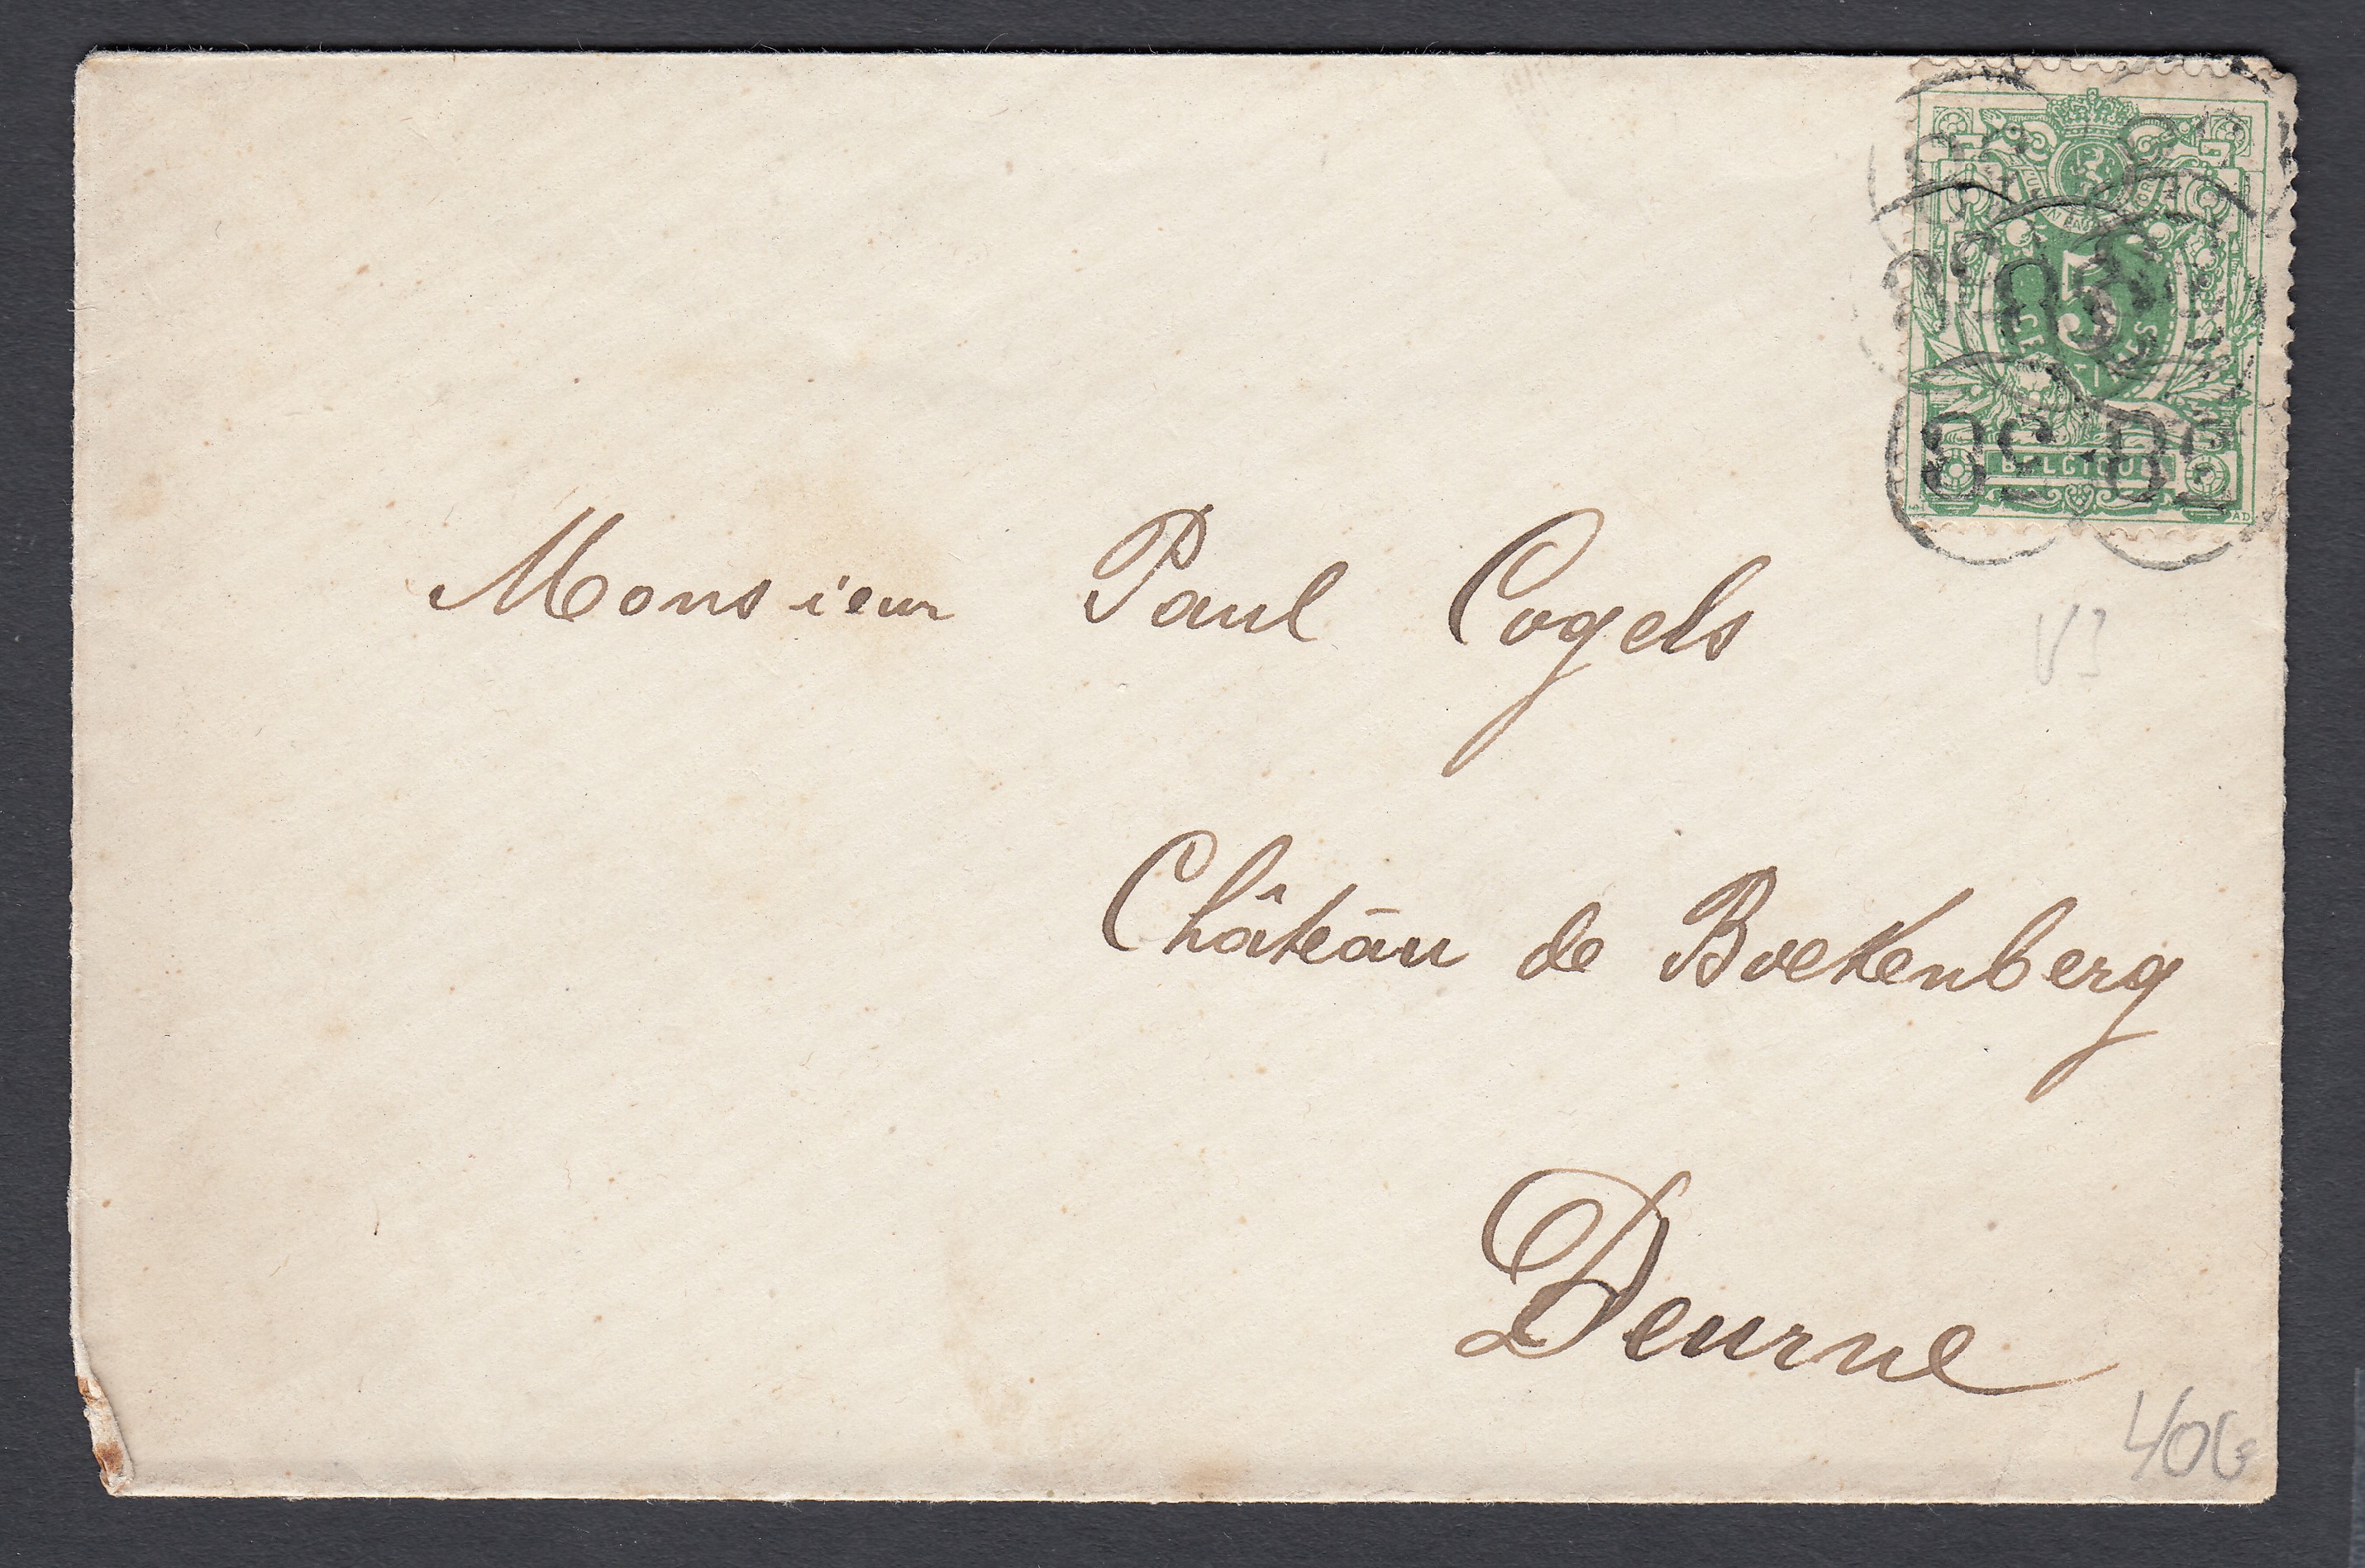 5
CENTIMES
BELGIQUE
Monsieur Paul Cogels
Château de Boekenberg
Deurne